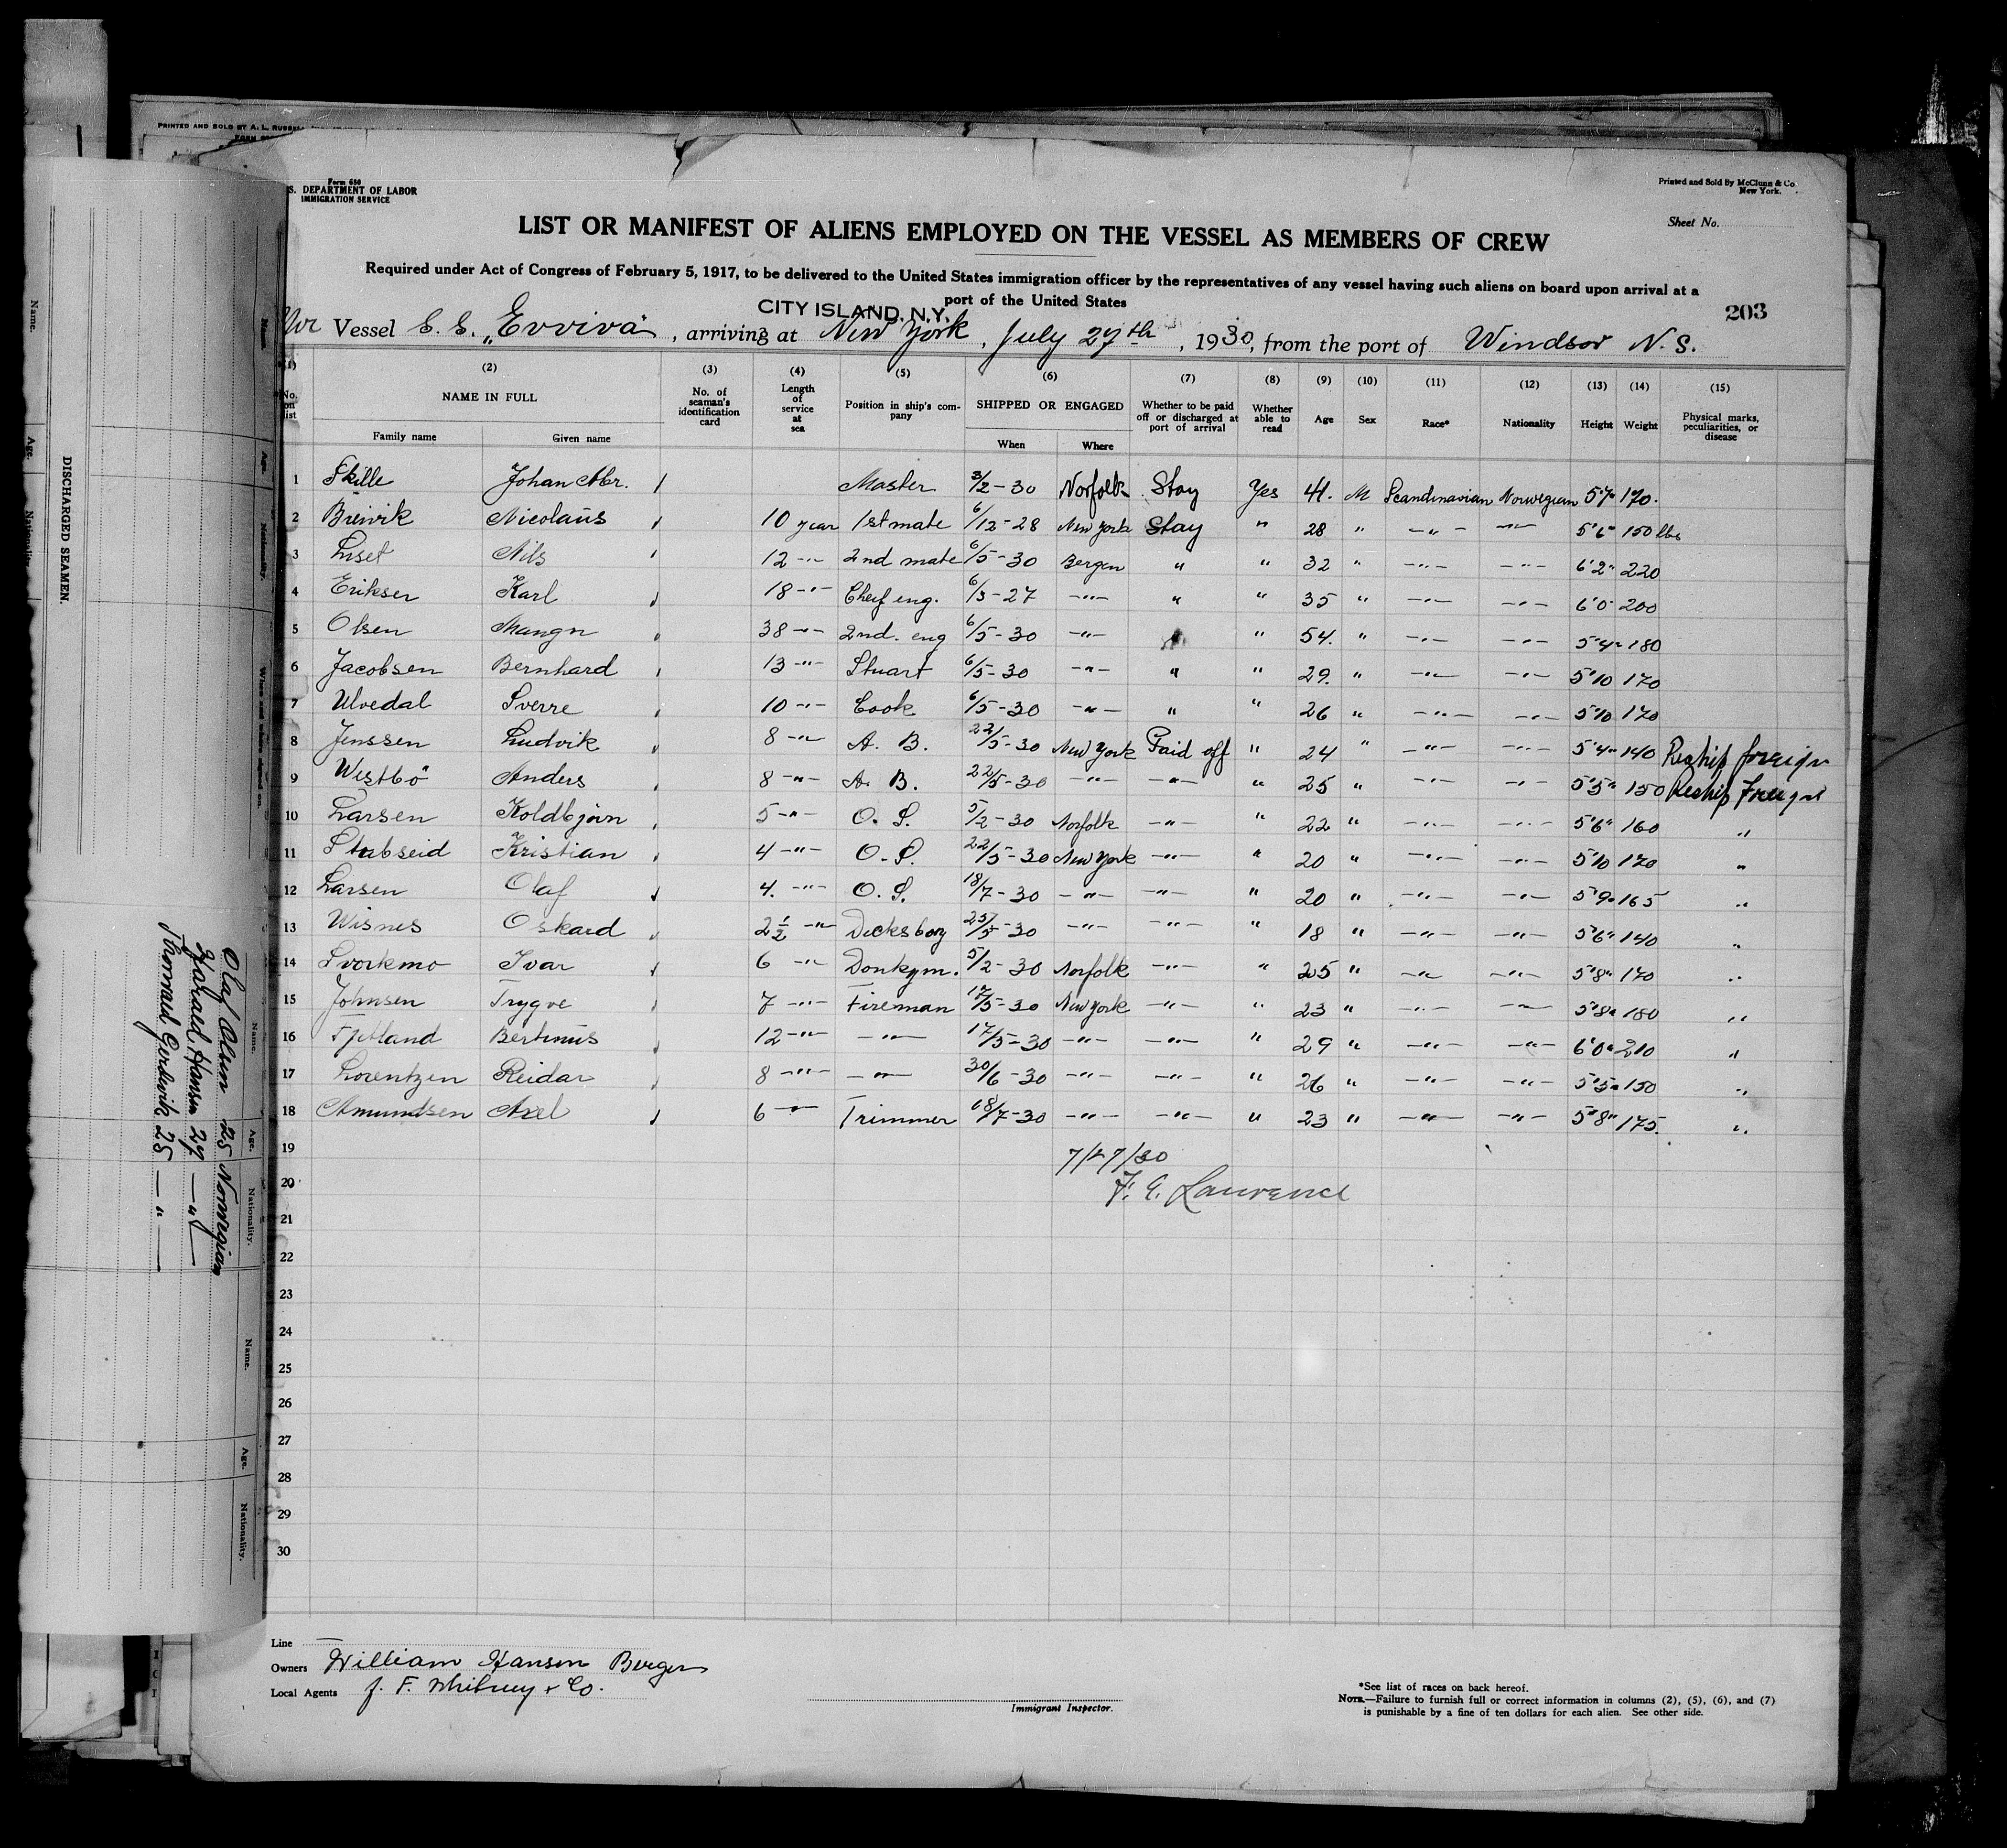 PRINTED AND SOLD BY A. L. RUSSELL
Form 680
S. DEPARTMENT OF LABOR
IMMIGRATION SERVICE
Printed and Sold By McClunn & Co.
New York.
Sheet No.
LIST OR MANIFEST OF ALIENS EMPLOYED ON THE VESSEL AS MEMBERS OF CREW
Required under Act of Congress of February 5, 1917, to be delivered to the United States immigration officer by the representatives of any vessel having such aliens on board upon arrival at a
port of the United States
CITY ISLAND, N.Y.
203
Nor Vessel S.S. „Evviva", arriving at New York, July 27th, 1930, from the port of Windsor N.S.
(1) (2) (3) (4) (5) (6) (7) (8) (9) (10) (11) (12) (13) (14) (15)
No. on list NAME IN FULL Family name Given name No. of seaman's identification card Length of service at sea Position in ship's company SHIPPED OR ENGAGED When Where Whether to be paid off or discharged at port of arrival Whether able to read Age Sex Race* Nationality Height Weight Physical marks, peculiarities, or disease
1 Skille Johan Abr. Master 3/2-30 Norfolk Stay Yes 41. M Scandinavian Norwegian 5'7" 170.
2 Breivik Nicolaus 10 year 1st mate 6/12-28 New York Stay " 28 " -"- -"- 5'6" 150 lbs
3 Liset Nils 12 -"- 2nd mate 6/5-30 Bergen " " 32 " -"- -"- 6'2" 220
4 Eriksen Karl 18 -"- Cheif eng. 6/3-27 -"- " " 35 " -"- -"- 6'0" 200
5 Olsen Mangn 38 -"- 2nd. eng 6/5-30 -"- " " 54. " -"- -"- 5'4" 180
6 Jacobsen Bernhard 13 -"- Stuart 6/5-30 -"- " " 29. " -"- -"- 5'10 170
7 Ulvedal Sverre 10 -"- Cook 6/5-30 -"- " " 26 " -"- -"- 5'10 170
8 Jenssen Ludvik 8 -"- A. B. 22/5-30 New York Paid off " 24 " -"- -"- 5'4" 140 Reship foreign
9 Westbö Anders 8 -"- A. B. 22/5-30 -"- -"- " 25 " -"- " 5'5" 150 Reship Foreign
10 Larsen Koldbjørn 5 -"- O. S. 5/2-30 Norfolk -"- " 22 " -"- -"- 5'6" 160 "
11 Stubseid Kristian 4 -"- O. S. 22/5-30 New York -"- " 20 " -"- -"- 5'10 170 "
12 Larsen Olaf 4. -"- O. S. 18/7-30 -"- -"- " 20 " -"- -"- 5'9" 165 "
13 Wisnes Oskard 2 1/2 -"- Decksboy 25/5-30 -"- -"- " 18 " -"- -"- 5'6" 140 "
14 Svorkmo Ivar 6 -"- Donkeym. 5/2-30 Norfolk -"- " 25 " -"- -"- 5'8" 170 "
15 Johnsen Trygve 7 -"- Fireman 17/5-30 New York -"- " 23 " -"- -"- 5'8" 180 "
16 Fjetland Bertinus 12 -"- -"- 17/5-30 -"- -"- " 29 " -"- -"- 6'0" 210 "
17 Lorentzen Reidar 8 -"- -"- 30/6-30 -"- -"- " 26 " -"- -"- 5'5" 150 "
18 Amundsen Axel 6 -"- Trimmer 18/7-30 -"- -"- " 23 " -"- -"- 5'8" 175. "
19
7/27/30
20
F. E. Lawrence
21
22
23
24
25
26
27
28
29
30
Line
Owners William Hansen Bergen
Local Agents J. F. Whitney & Co.
Immigrant Inspector.
*See list of races on back hereof.
NOTE.—Failure to furnish full or correct information in columns (2), (5), (6), and (7)
is punishable by a fine of ten dollars for each alien. See other side.
DISCHARGED SEAMEN.
Name. Age. Nationality.
Name. Age. Nationality. When and where signed on.
Name. Age. Nationality.
Olaf Olsen 25 Norwegian
Harald Hansen 27 -"-
Thorvald 25 -"-
Name. Age. Nationality.